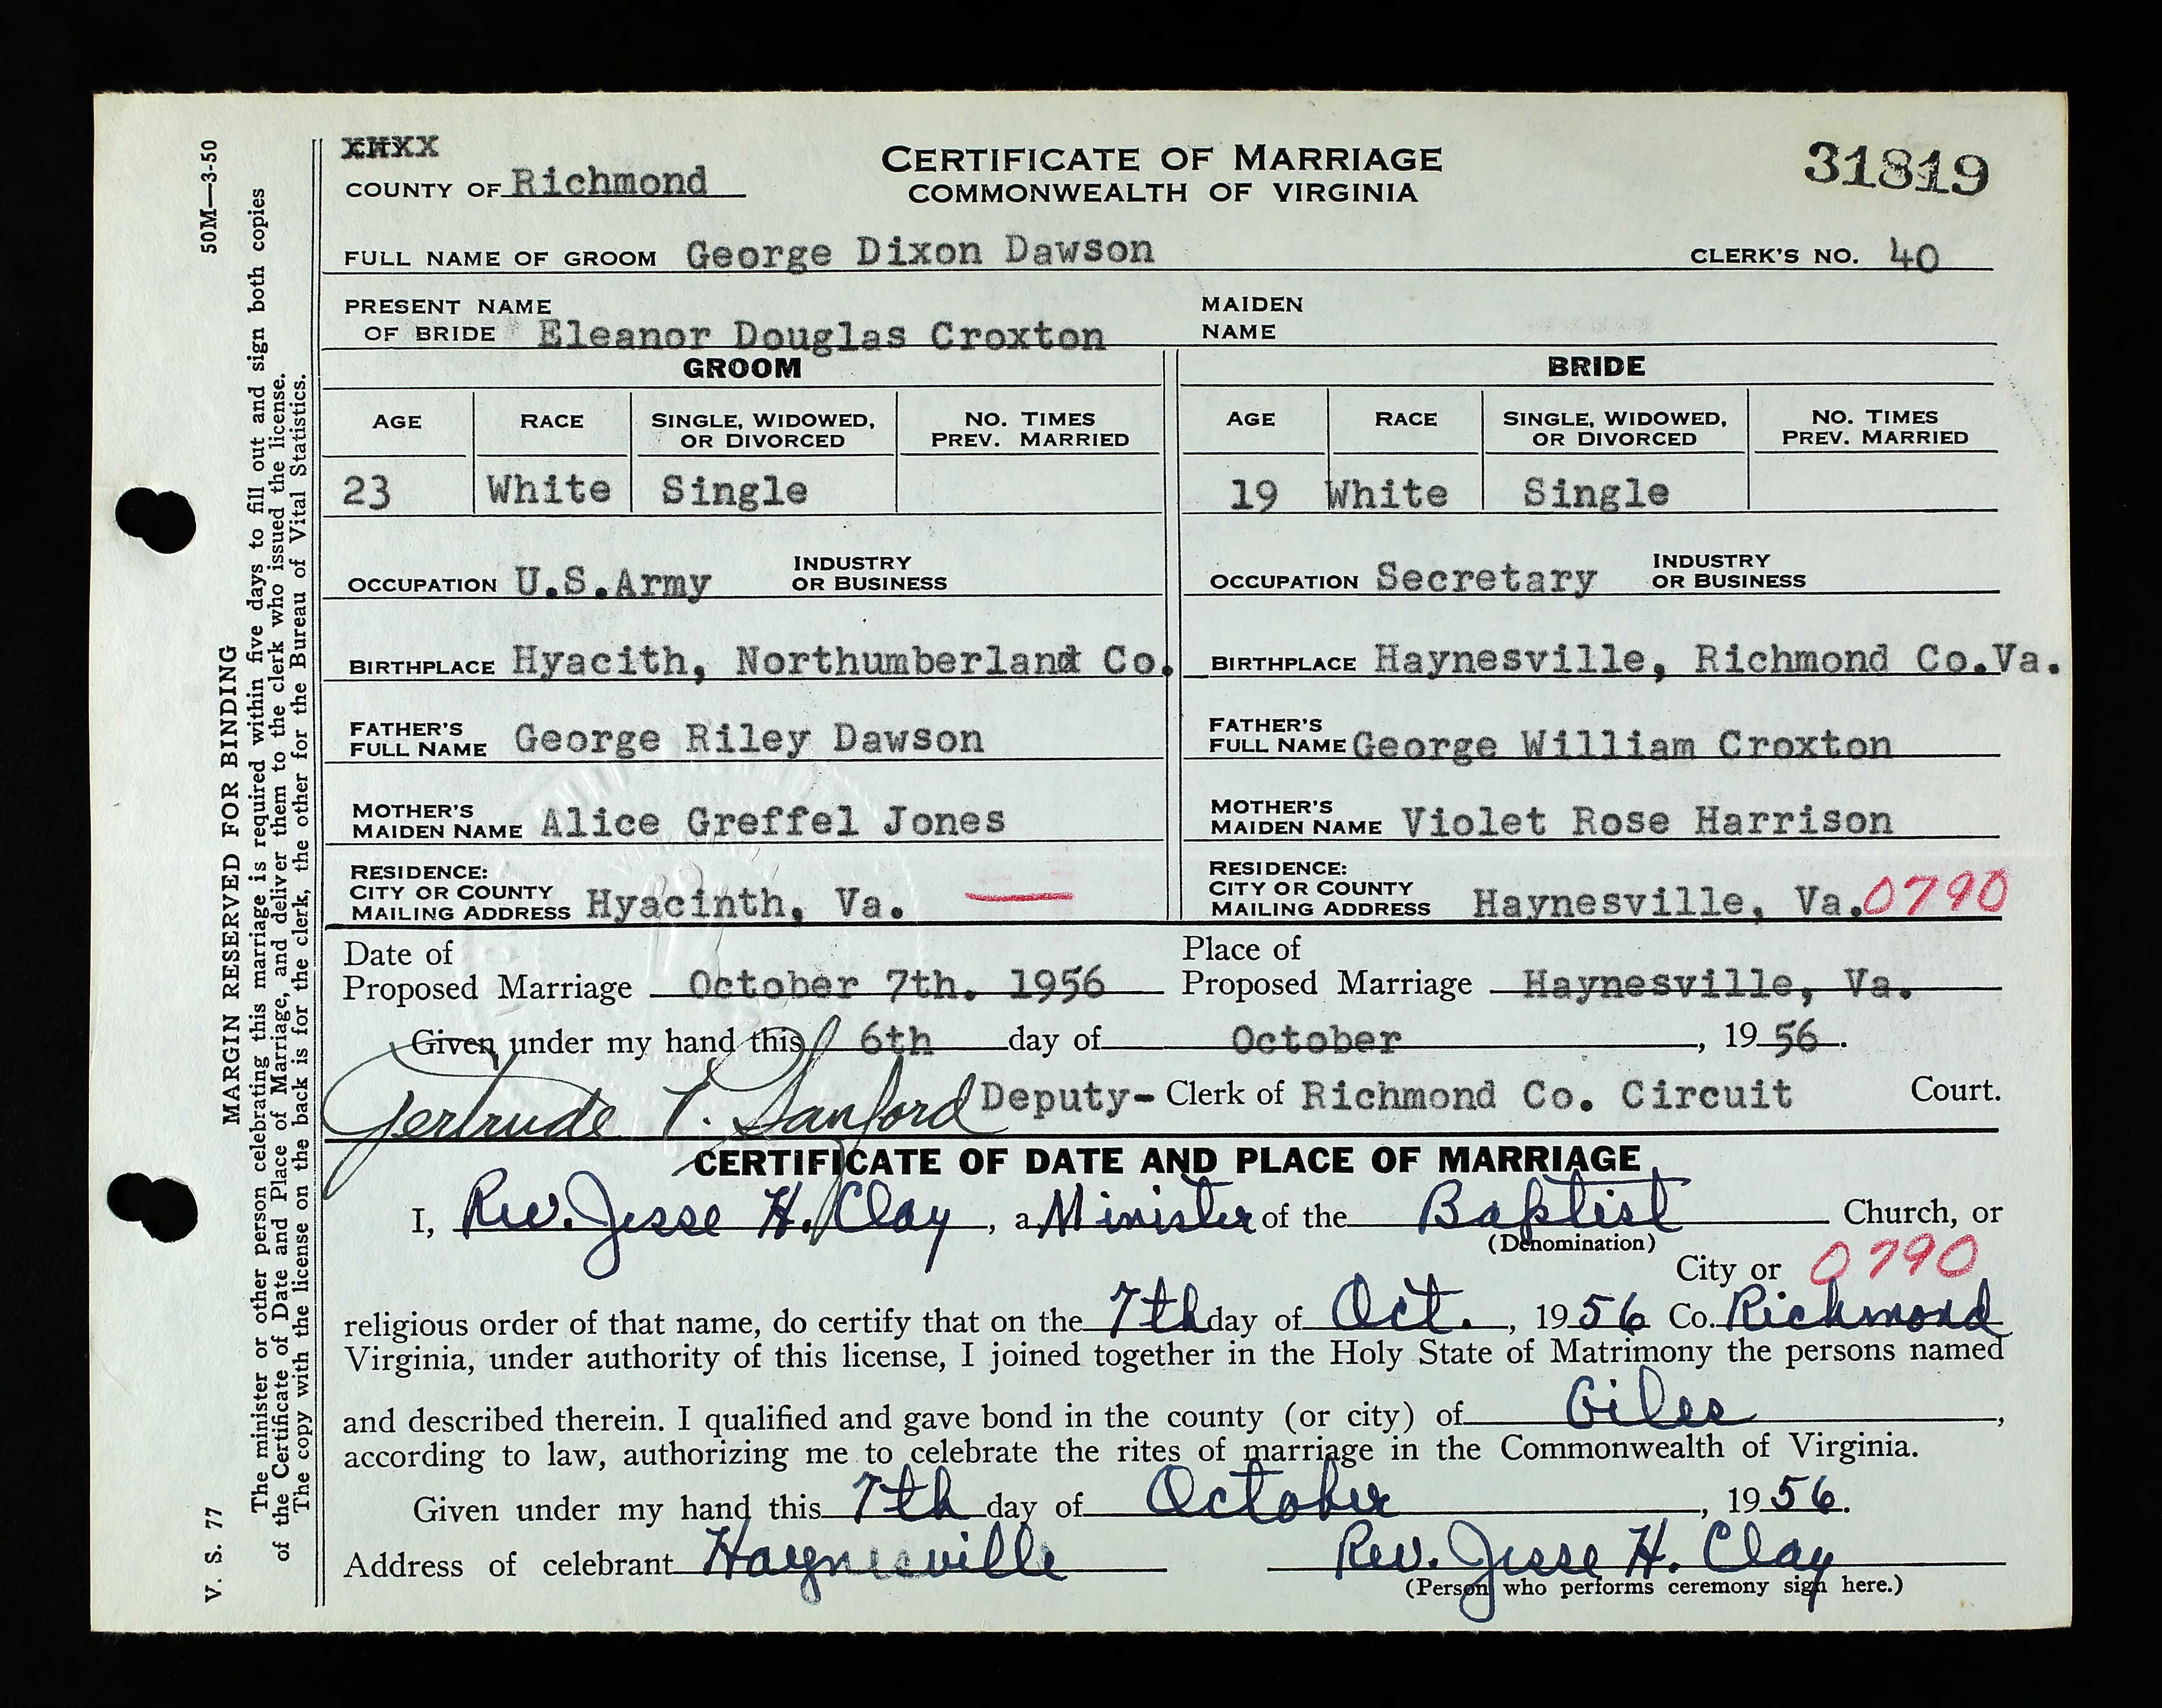 XHXX
COUNTY OF Richmond
CERTIFICATE OF MARRIAGE
COMMONWEALTH OF VIRGINIA
31819
FULL NAME OF GROOM George Dixon Dawson CLERK'S NO. 40
PRESENT NAME
OF BRIDE Eleanor Douglas Croxton
MAIDEN
NAME
GROOM
BRIDE
AGE RACE SINGLE, WIDOWED, OR DIVORCED NO. TIMES PREV. MARRIED
AGE RACE SINGLE, WIDOWED, OR DIVORCED NO. TIMES PREV. MARRIED
23 White Single
19 White Single
OCCUPATION U.S.Army INDUSTRY OR BUSINESS
OCCUPATION Secretary INDUSTRY OR BUSINESS
BIRTHPLACE Hyacith, Northumberland Co.
BIRTHPLACE Haynesville, Richmond Co.Va.
FATHER'S
FULL NAME George Riley Dawson
FATHER'S
FULL NAME George William Croxton
MOTHER'S
MAIDEN NAME Alice Greffel Jones
MOTHER'S
MAIDEN NAME Violet Rose Harrison
RESIDENCE:
CITY OR COUNTY
MAILING ADDRESS Hyacinth, Va.
RESIDENCE:
CITY OR COUNTY
MAILING ADDRESS Haynesville, Va. 0790
Date of
Proposed Marriage October 7th. 1956
Place of
Proposed Marriage Haynesville, Va.
Given under my hand this 6th day of October, 1956.
Gertrude T. Sanford Deputy- Clerk of Richmond Co. Circuit Court.
CERTIFICATE OF DATE AND PLACE OF MARRIAGE
I, Rev. Jesse H. Clay, a Minister of the Baptist Church, or
(Denomination)
City or 0790
religious order of that name, do certify that on the 7th day of Oct., 1956 Co. Richmond
Virginia, under authority of this license, I joined together in the Holy State of Matrimony the persons named
and described therein. I qualified and gave bond in the county (or city) of Giles,
according to law, authorizing me to celebrate the rites of marriage in the Commonwealth of Virginia.
Given under my hand this 7th day of October, 1956.
Address of celebrant Haynesville Rev. Jesse H. Clay
(Person who performs ceremony sign here.)
V. S. 77 MARGIN RESERVED FOR BINDING 50M—3-50
The minister or other person celebrating this marriage is required within five days to fill out and sign both copies
of the Certificate of Date and Place of Marriage, and deliver them to the clerk who issued the license.
The copy with the license on the back is for the clerk, the other for the Bureau of Vital Statistics.